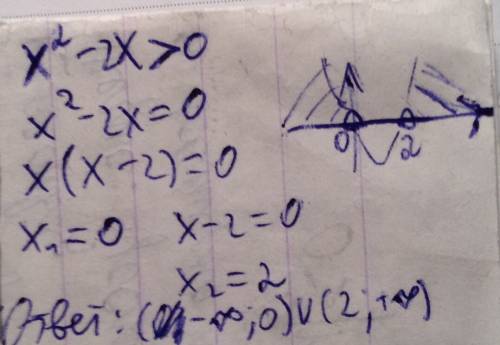 x² - 2x > 0
x² - 2x = 0
x(x - 2) = 0
x₁ = 0 x - 2 = 0
x₂ = 2
0 2
Ответ: (-∞; 0) ∪ (2; +∞)